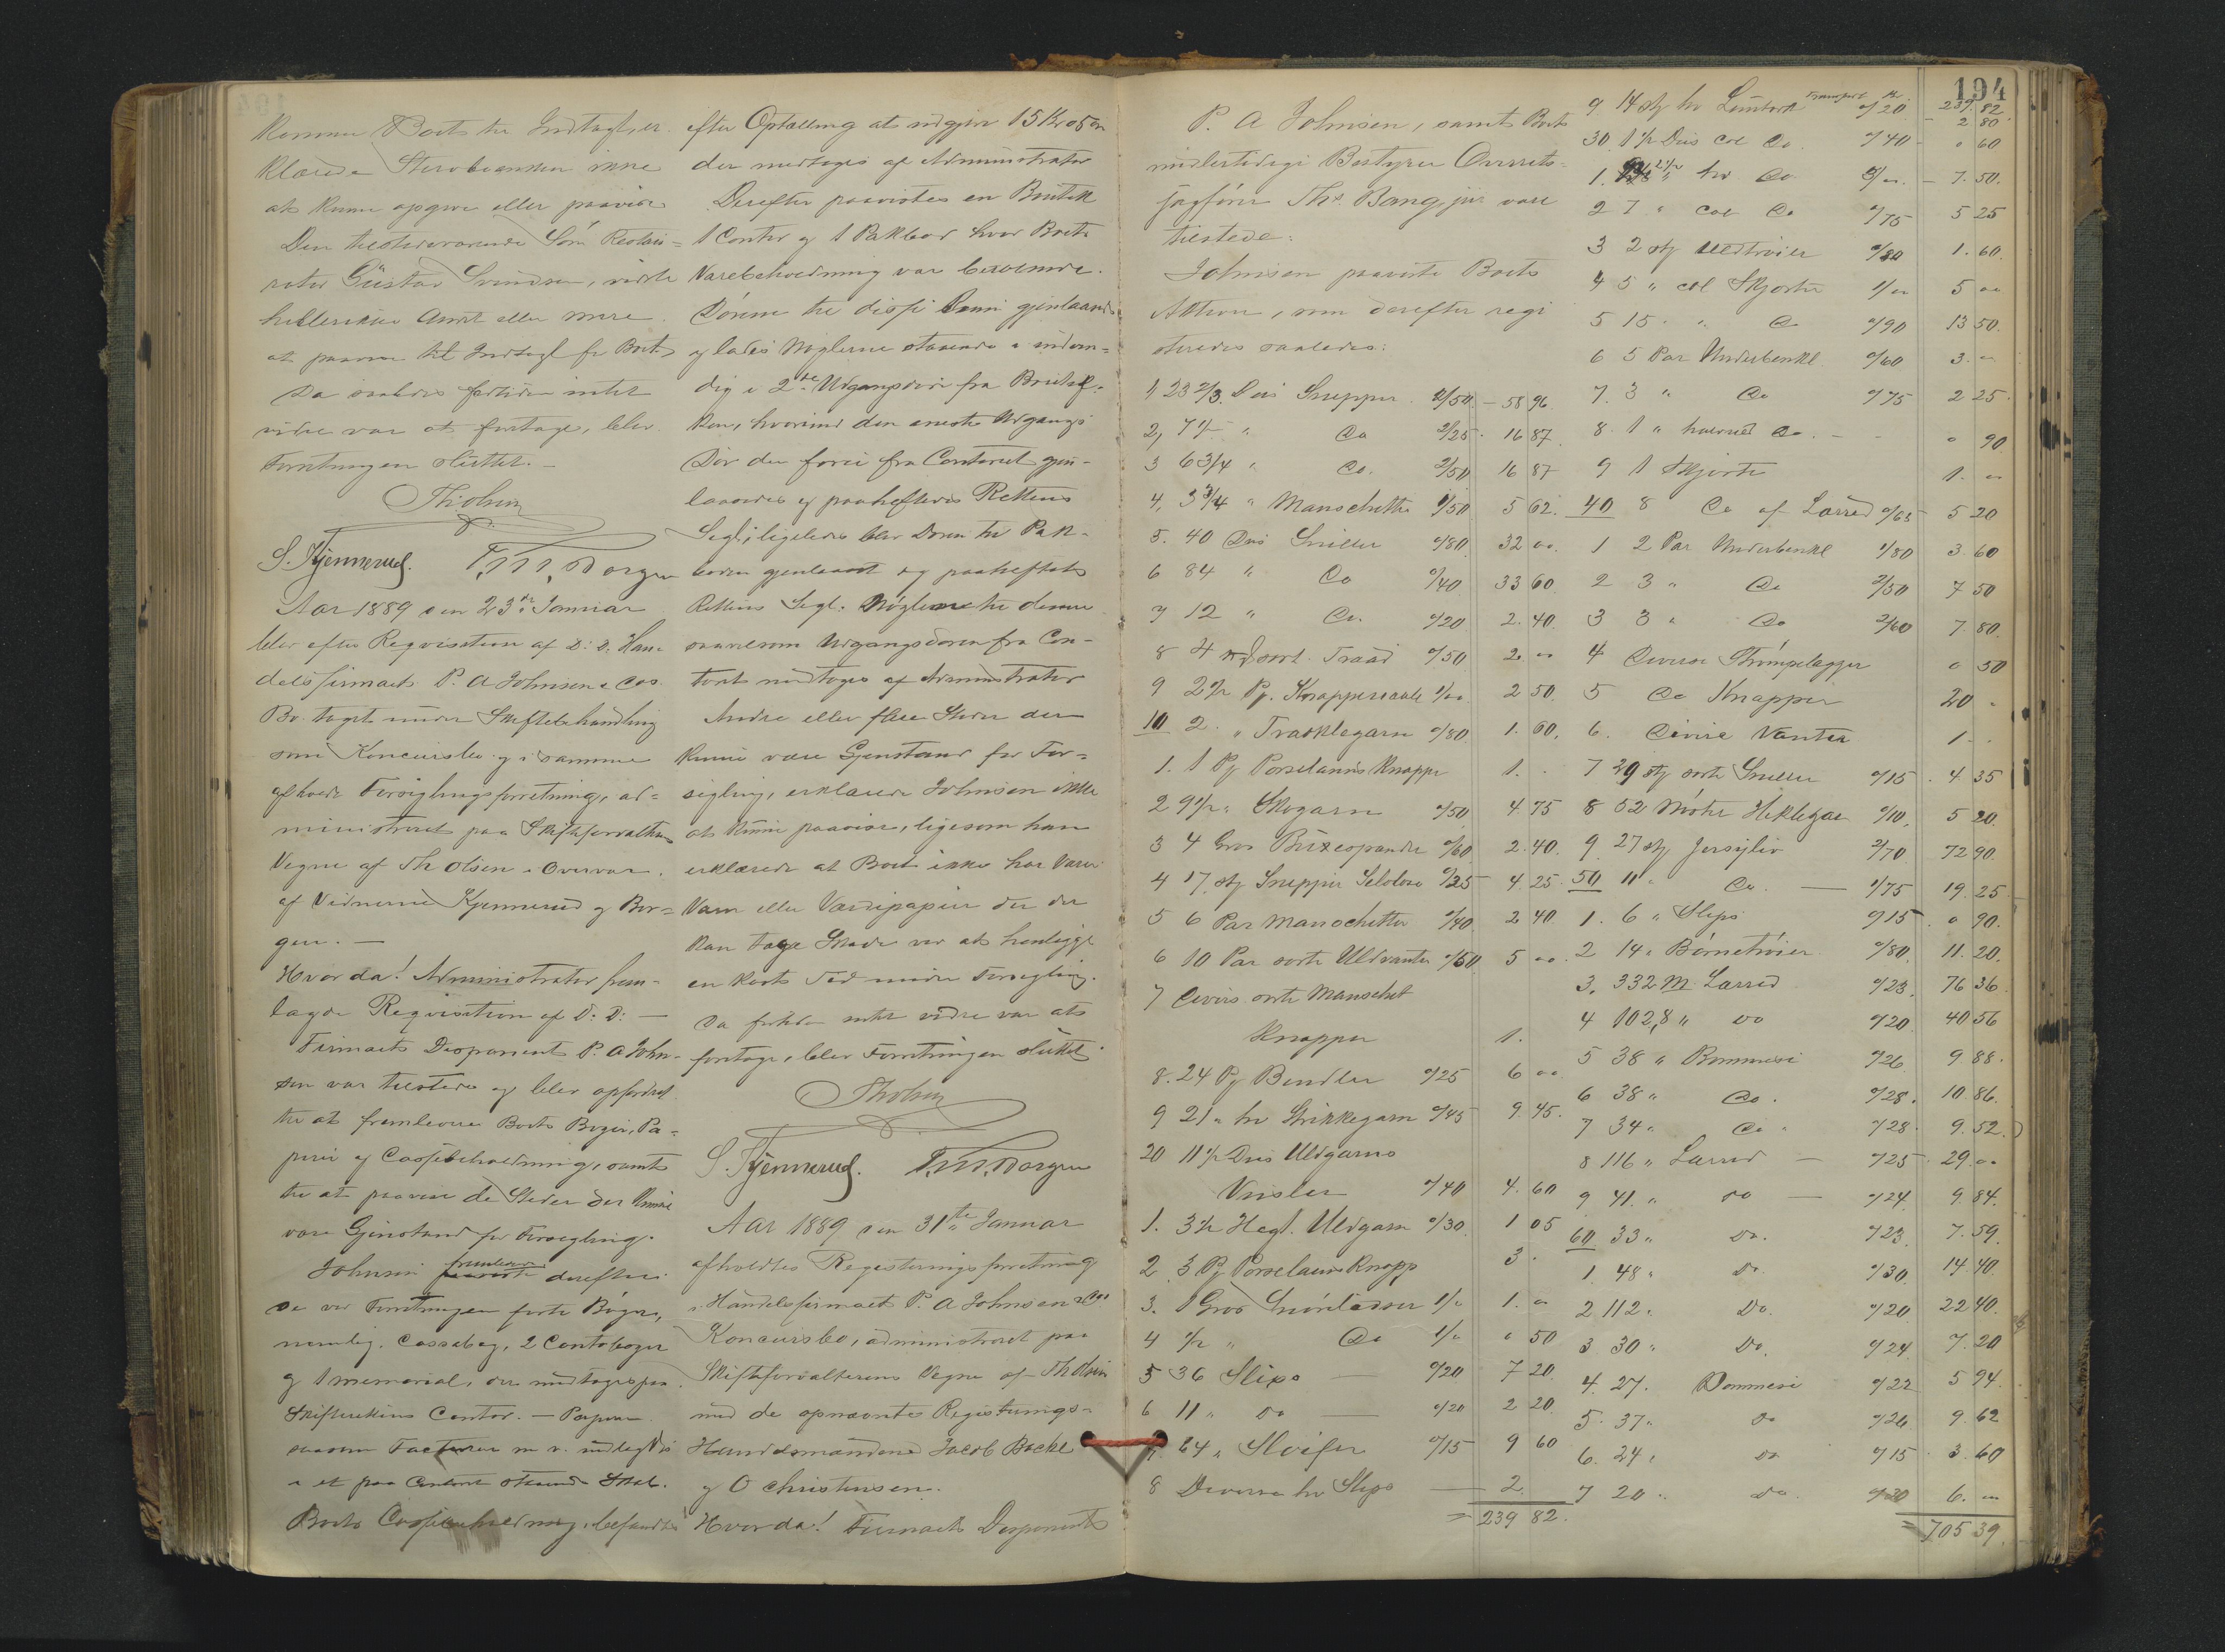 komme Boet til Indtægt, er
klærede ikke
at kunne opgive eller paavise
Den tilstedeværende Søn
Gustav Svendsen, vidste
heller ikke Andet eller mere
at paavise til Indtægt for Boet.
Da saaledes fortiden intet
videre var at foretage, blev
Forretningen sluttet. —
Th: Olsen
S. Kjennerud. T. M. Borgen
Aar 1889 den 23de Januar
blev efter Reqvisition af D: D: Han-
delsfirmaet P. A Johnsen & Cos
Bo taget under Skiftebehandling
som Koncursbo og i samme
afholdt Forseglingsforretning, ad-
ministreret paa Skifteforvalterens
Vegne af Th Olsen i Overvær
af Vidnerne Kjennerud og Bor-
gen. —
Hvorda! Administrator frem-
lagde Reqvisition af D: D: —
Firmaets Disponent P. A John-
sen var tilstede og blev opfordret
til at fremlevere Boets Bøger, Pa-
pirer og Cassebeholdning, samt
til at paavise de Steder der kunne
være Gjenstand for Forsegling.
Johnsen fremleverede derefter
de ved Forretningen førte Bøger,
nemlig, Cassabog, 2 Contobøger
og 1 Memorial, der medtoges paa
Skifterettens Contor. — Papirer
saasom Facturer m. v. indlagdes
i et paa Contoret staaende Skab.
Boets Cassebeholdning, befandtes
efter Optælling at udgjøre 15 Kr 05 Øre
der medtoges af Administrator
Derefter paavistes en Boutik
1 Contor og 1 Pakbod hvor Boets
Varebeholdning var beroende.
Dørene til disse Rum gjenlaasedes
og lodes Nøglerne staaende i indven-
dig i 2de Udgangsdøre fra Boutik-
ken, hvorimod den eneste Udgangs
Dør der førte fra Contoret gjen-
laasedes og paaheftedes Rettens
Segl; ligeledes blev Døren til Pak-
boden gjenlaaset og paaheftet
Rettens Segl. Nøglerne til denne
saavelsom Udgangsdøren fra Con-
toret medtoges af Administrator
Andre eller flere Steder der
kunne være Gjenstand for For-
segling, erklærede Johnsen ikke
at kunne paavise, ligesom han
erklærede at Boet ikke har Varer
Varer eller Værdipapirer der der
kan tage Skade ved at henligge
en kort Tid under Forsegling.
Da fortiden intet videre var at
foretage, blev Forretningen sluttet
Th Olsen
S. Kjennerud. T. M. Borgen
Aar 1889 den 31te Januar
afholdtes Registreringsforretning
i Handelsfirmaet P. A Johnsen & Cos
Koncursbo, administreret paa
Skifteforvalterens Vegne af Th Olsen
med de opnævnte Registrerings-
Mændene Jacob Bache
og O Christensen.
Hvorda! Firmaets Disponent
194
P. A Johnsen, samt Boets
midlertidige Bestyrer Overrets-
sagfører Ths. Bang jur vare
tilstede:
Johnsen paaviste Boets
Aktiver, som derefter regi
streredes saaledes:
1, 23 2/3 Dus Snipper 2/50 — 58 96
2, 7 1/2 " Do 2/25 16 87
3 6 3/4 " Do. 2/50 16 87
4, 3 3/4 " Manschetter 1/50 5 62.
5. 40 Dus Sneller 0/80 32 00
6 84 " Do 0/40 33 60
7 12 " Do. 0/20 2.40
8 4 sort. Traad 0/50 2 00
9 2 1/2 Pk. 1/00 2 50
10 2 " Traaklegarn 0/80 1.60.
1. 1 Pk Porselainsknapper 1.
2 9 1/2 " Skogarn 0/50 4 75
3 4 Gros Buxespænder 0/60 2.40
4 17. stk Snipper 0/25 4 25
5 6 Par Manschetter 0/40 2 40
6 10 Par sorte Uldvanter 0/50 5 00
7 Divers sorte Manschet
Knapper 1.
8. 24 Pk Bendler 0/25 6 00
9 21 " hv Strikkegarn 0/45 9.45.
20 11 1/2 Dus Uldgarns
Vinsler 0/40 4.60
1. 3 1/2 Hegt. Uldgarn 0/30 1 05
2 3 Pk Porselains Knapp 3.
3. 1 Gros Snørlidser 1/00 1.00
4 1/2 " Do 1/00 0 50
5 36 Slips — 0/20 7 20
6 11 " Do — 0/20 2 20
7. 64 " Sløifer 0/15 9 60
8 Diverse hv Slips — 2
= 239 82.
Transport Kr. 239.82
9 14 stk hv 0/20 — 2 80
30 1 1/2 Dus col Do. 0/40 — 0 60
1. 2 1/2 " hv Do 3/00. — 7.50.
2 7 " col Do 0/75 5 25
3 2 stk Uldtrøier 0/80 1.60
4 5 " col Skjorter 1/00 5 00
5 15. " Do 0/90 13 50.
6 5 Par Underbenkl 0/60 3.00
7. 3 " Do 0/75 2 25
8. 1 " Do. — 0 90
9 1 Skjorte 1.00
40 8 Do af Lærred 0/65 5 20
1 2 Par Underbenkl 1/80 3.60
2 3 " Do 2/50 7 50
3 3 " Do 2/60 7.80
4 Diverse Strømpelægger 0 50
5 Do Knapper 20
6. Divire Vanter 1
7 29 stk sorte Sneller 0/15 4 35
8 52 Nøster Heklegar 0/10. 5 20.
9. 27 stk Jersyliv 2/70 72 90.
50 11 " Do. — 1/75 19.25
1. 6 " Slips 0/15 0 90.
2 14 " Børnetrøier. 0/80. 11.20.
3. 332 M Lærred 0/23. 76 36
4 102,8 " Do 0/20 40 56
5 38 " Bommesi 0/26 9 88.
6 38 " Do. 0/28. 10.86.
7 34 " Do 0/28 9.52.
8 116 " Lærred — 0/25 29.00
9 41. " Do — 0/24 9.84.
60 33 " Do. 0/23 7.59
1 48 " Do. 0/30 14.40
2 112. " Do. 0/20 22 40.
3 30 " Do. 0/24 7.20
4. 27. Bommesi 0/22 5 94
5. 37 " Do 0/26 9.62
6. 24 " Do 0/15 3.60
7 20 " Do. 0/30 6.00
= 705 39.